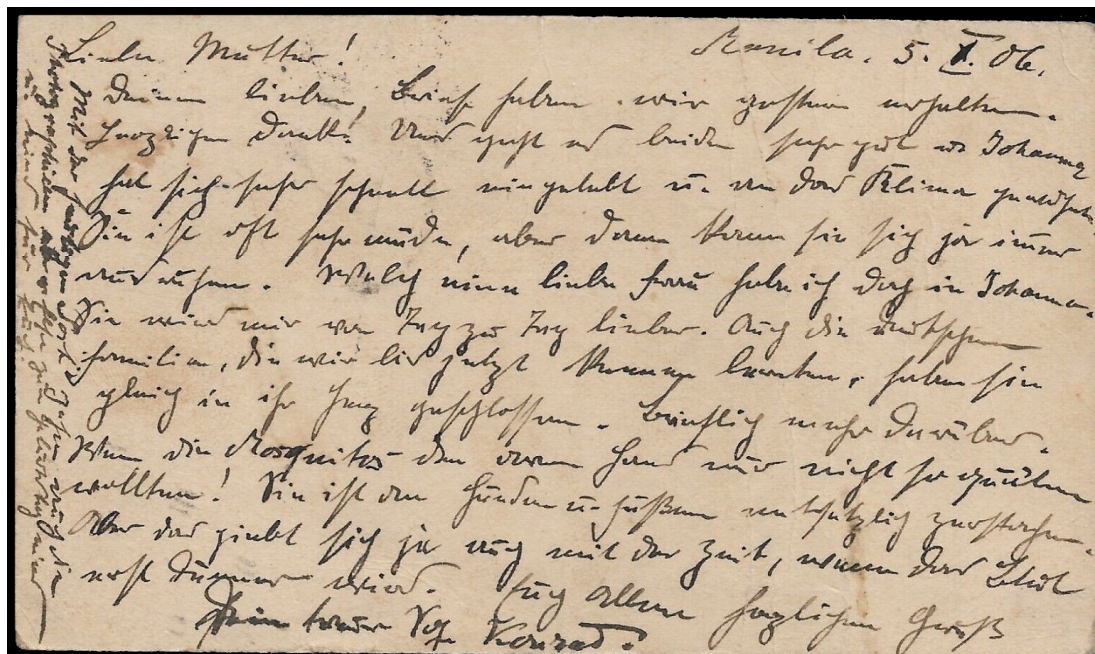 Manila. 5. X. 06.
Liebe Mutter!
Deinen lieben Brief haben wir gestern erhalten.
Herzlichen Dank! Uns geht es beiden sehr gut u. Johanna
hat sich sehr schnell eingelebt u. an das Klima gewöhnt.
Sie ist oft sehr müde, aber dann kann sie sich ja immer
ausruhen. Welch eine liebe Frau habe ich doch in Johanna.
Sie wird mir von Tag zu Tag lieber. Auch die deutschen
Familien, die wir bis jetzt kennen lernten, haben sie
gleich in ihr Herz geschlossen. Brieflich mehr darüber.
Wenn die Mosquitos den armen Hans nur nicht so quälen
wollten! Sie ist an Händen u. Füßen entsetzlich zerstochen.
Aber das giebt sich ja auch mit der Zeit, wenn das Blut
erst dünner wird. Euch Allen herzlichen Gruß
Dein treuer Sohn Konrad.
Mit der heutigen Post gehen auch die
Photographieen ab
u. eine für Euch